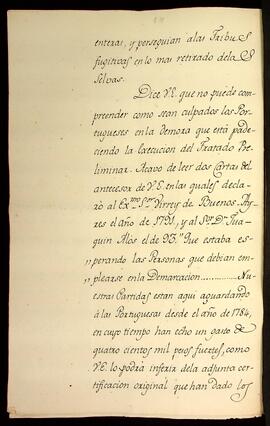 enteras, y perseguian a las Tribus
fugitivas en lo mas retirado de las
Selvas.
Dice V.E. que no puede com-
preender como sean culpados los Por-
tugueses en la Demora que está pade-
ciendo la execucion del Tratado Pre-
liminar. Acavo de leer dos Cartas del
antecesor de V.E. en las quales decla-
ró al Exmo Sor Virrey de Buenos Ay-
res el año de 1791, y al Sor Dn Joa-
quin Alós el de 93. Que estaba es-
"perando las Personas que debian em-
"plearse en la Demarcacion......... Nu-
estras Partidas estan aqui aguardando
á las Portuguesas desde el año de 1784,
en cuyo tiempo han echo un gasto de
quatro cientos mil pesos fuertes, como
V.E. lo podrá inferir de la adjunta cer-
tificacion original que han dado los